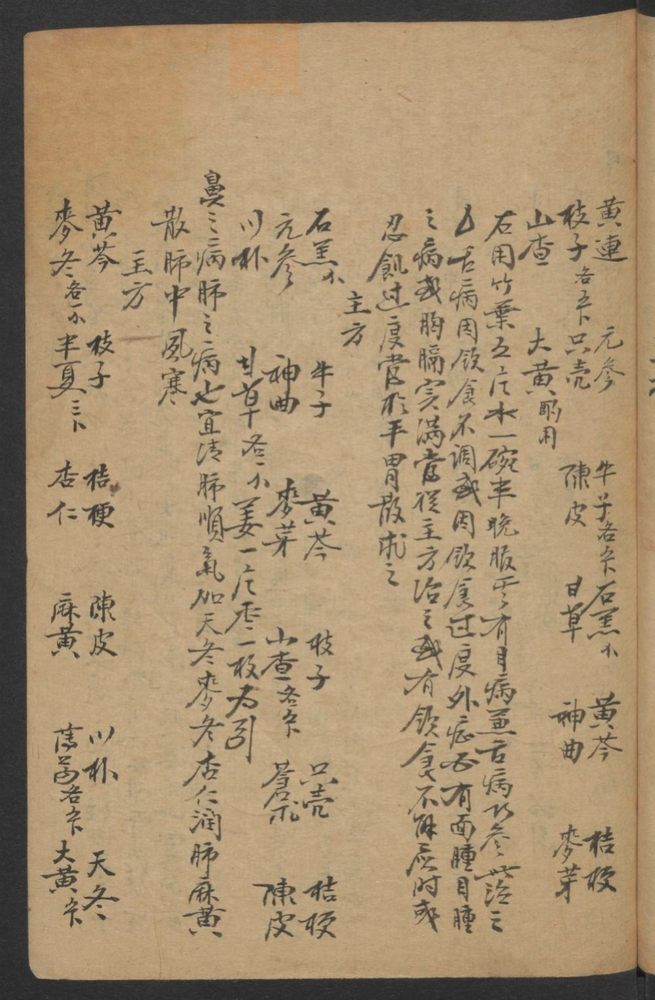 黄連 元参 牛子各 石羔 黄芩 桔梗
枝子各 只壳 陳皮 甘草 神曲 麥芽
山查 大黄酌用
右用竹葉五片水一碗半晚服 有目病兼舌病 参 治之
舌病因飲食不調或因飲食过度外症 有面腫目腫
之病或胸膈 满當從主方治之或有飲食不 应时或
忍飢过度當於平胃散求之
主方
石羔 牛子 黄芩 枝子 只壳 桔梗
元参 神曲 麥芽 山查各 蒼朮 陳皮
川朴 甘草各一 姜一片枣二枚为引
鼻之病肺之病也宜清肺順氣如天冬麥冬杏仁润肺麻黄
散肺中風寒
主方
黄芩 枝子 桔梗 陳皮 川朴 天冬
麥冬各一 半夏三 杏仁 麻黄 各 大黄